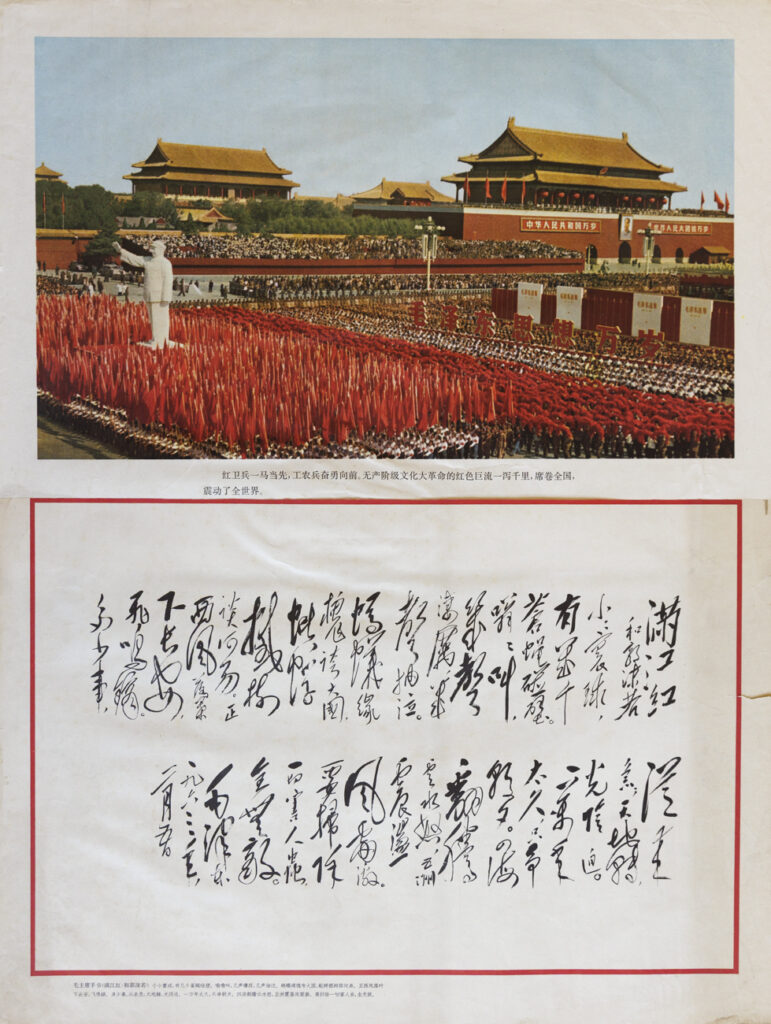 中华人民共和国万岁
世界人民大团结万岁
毛泽东思想万岁
红卫兵一马当先，工农兵奋勇向前。无产阶级文化大革命的红色巨流一泻千里，席卷全国，
震动了全世界。
滿江红
和郭沫若
小小寰球，
有幾个
蒼蝇碰壁。
嗡嗡叫，
幾聲
凄厲，幾
聲抽泣。
螞蟻缘
槐誇大国，
蚍蜉
撼樹
谈何易。正
西風落葉
下长安，
飛鸣镝。
多少事，
從来
急。天地轉，
光陰迫。
一萬年
太久，只争
朝夕。四海
翻騰
雲水怒，五洲
震盪
風雷激。
要掃除
一切害人虫，
全無敵。
毛泽东
一九六三年
二月五日
毛主席手书《满江红·和郭沫若》 小小寰球，有几个苍蝇碰壁。嗡嗡叫，几声凄厉，几声抽泣。蚂蚁缘槐夸大国，蚍蜉撼树谈何易。正西风落叶
下长安，飞鸣镝。 多少事，从来急；天地转，光阴迫。一万年太久，只争朝夕。四海翻腾云水怒，五洲震荡风雷激。要扫除一切害人虫，全无敌。